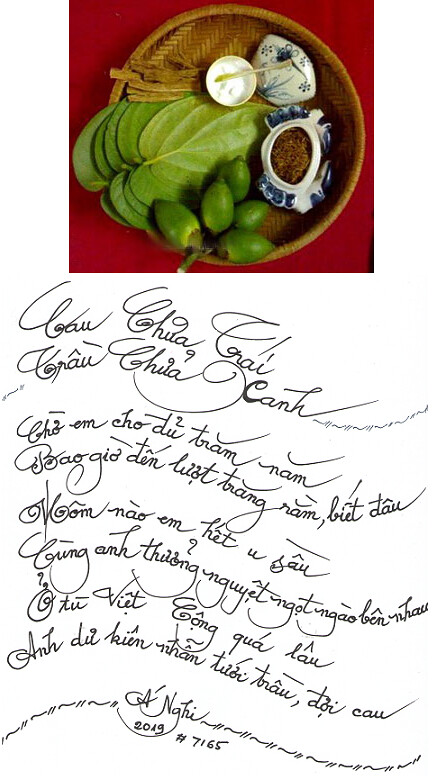 Cau Chửa Trái
Trầu Chửa Xanh
Chờ em cho đủ trăm năm
Bao giờ đến lượt trăng rằm, biết đâu
Hôm nào em hết u sầu
Cùng anh thưởng nguyệt ngọt ngào bên nhau
Ở tù Việt Cộng quá lâu
Anh dư kiên nhẫn tưới trầu, đợi cau
Á Nghi
2019
# 7165